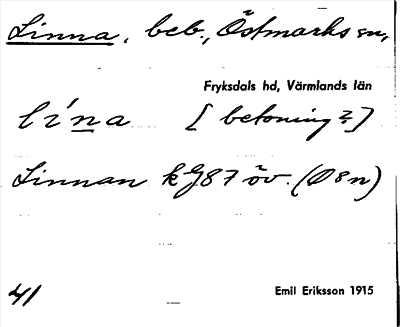 Linna, beb., Östmarks sn,
Fryksdals hd, Värmlands län
lína [betoning?]
Linnan kG87 öv. (Ö8n)
41
Emil Eriksson 1915